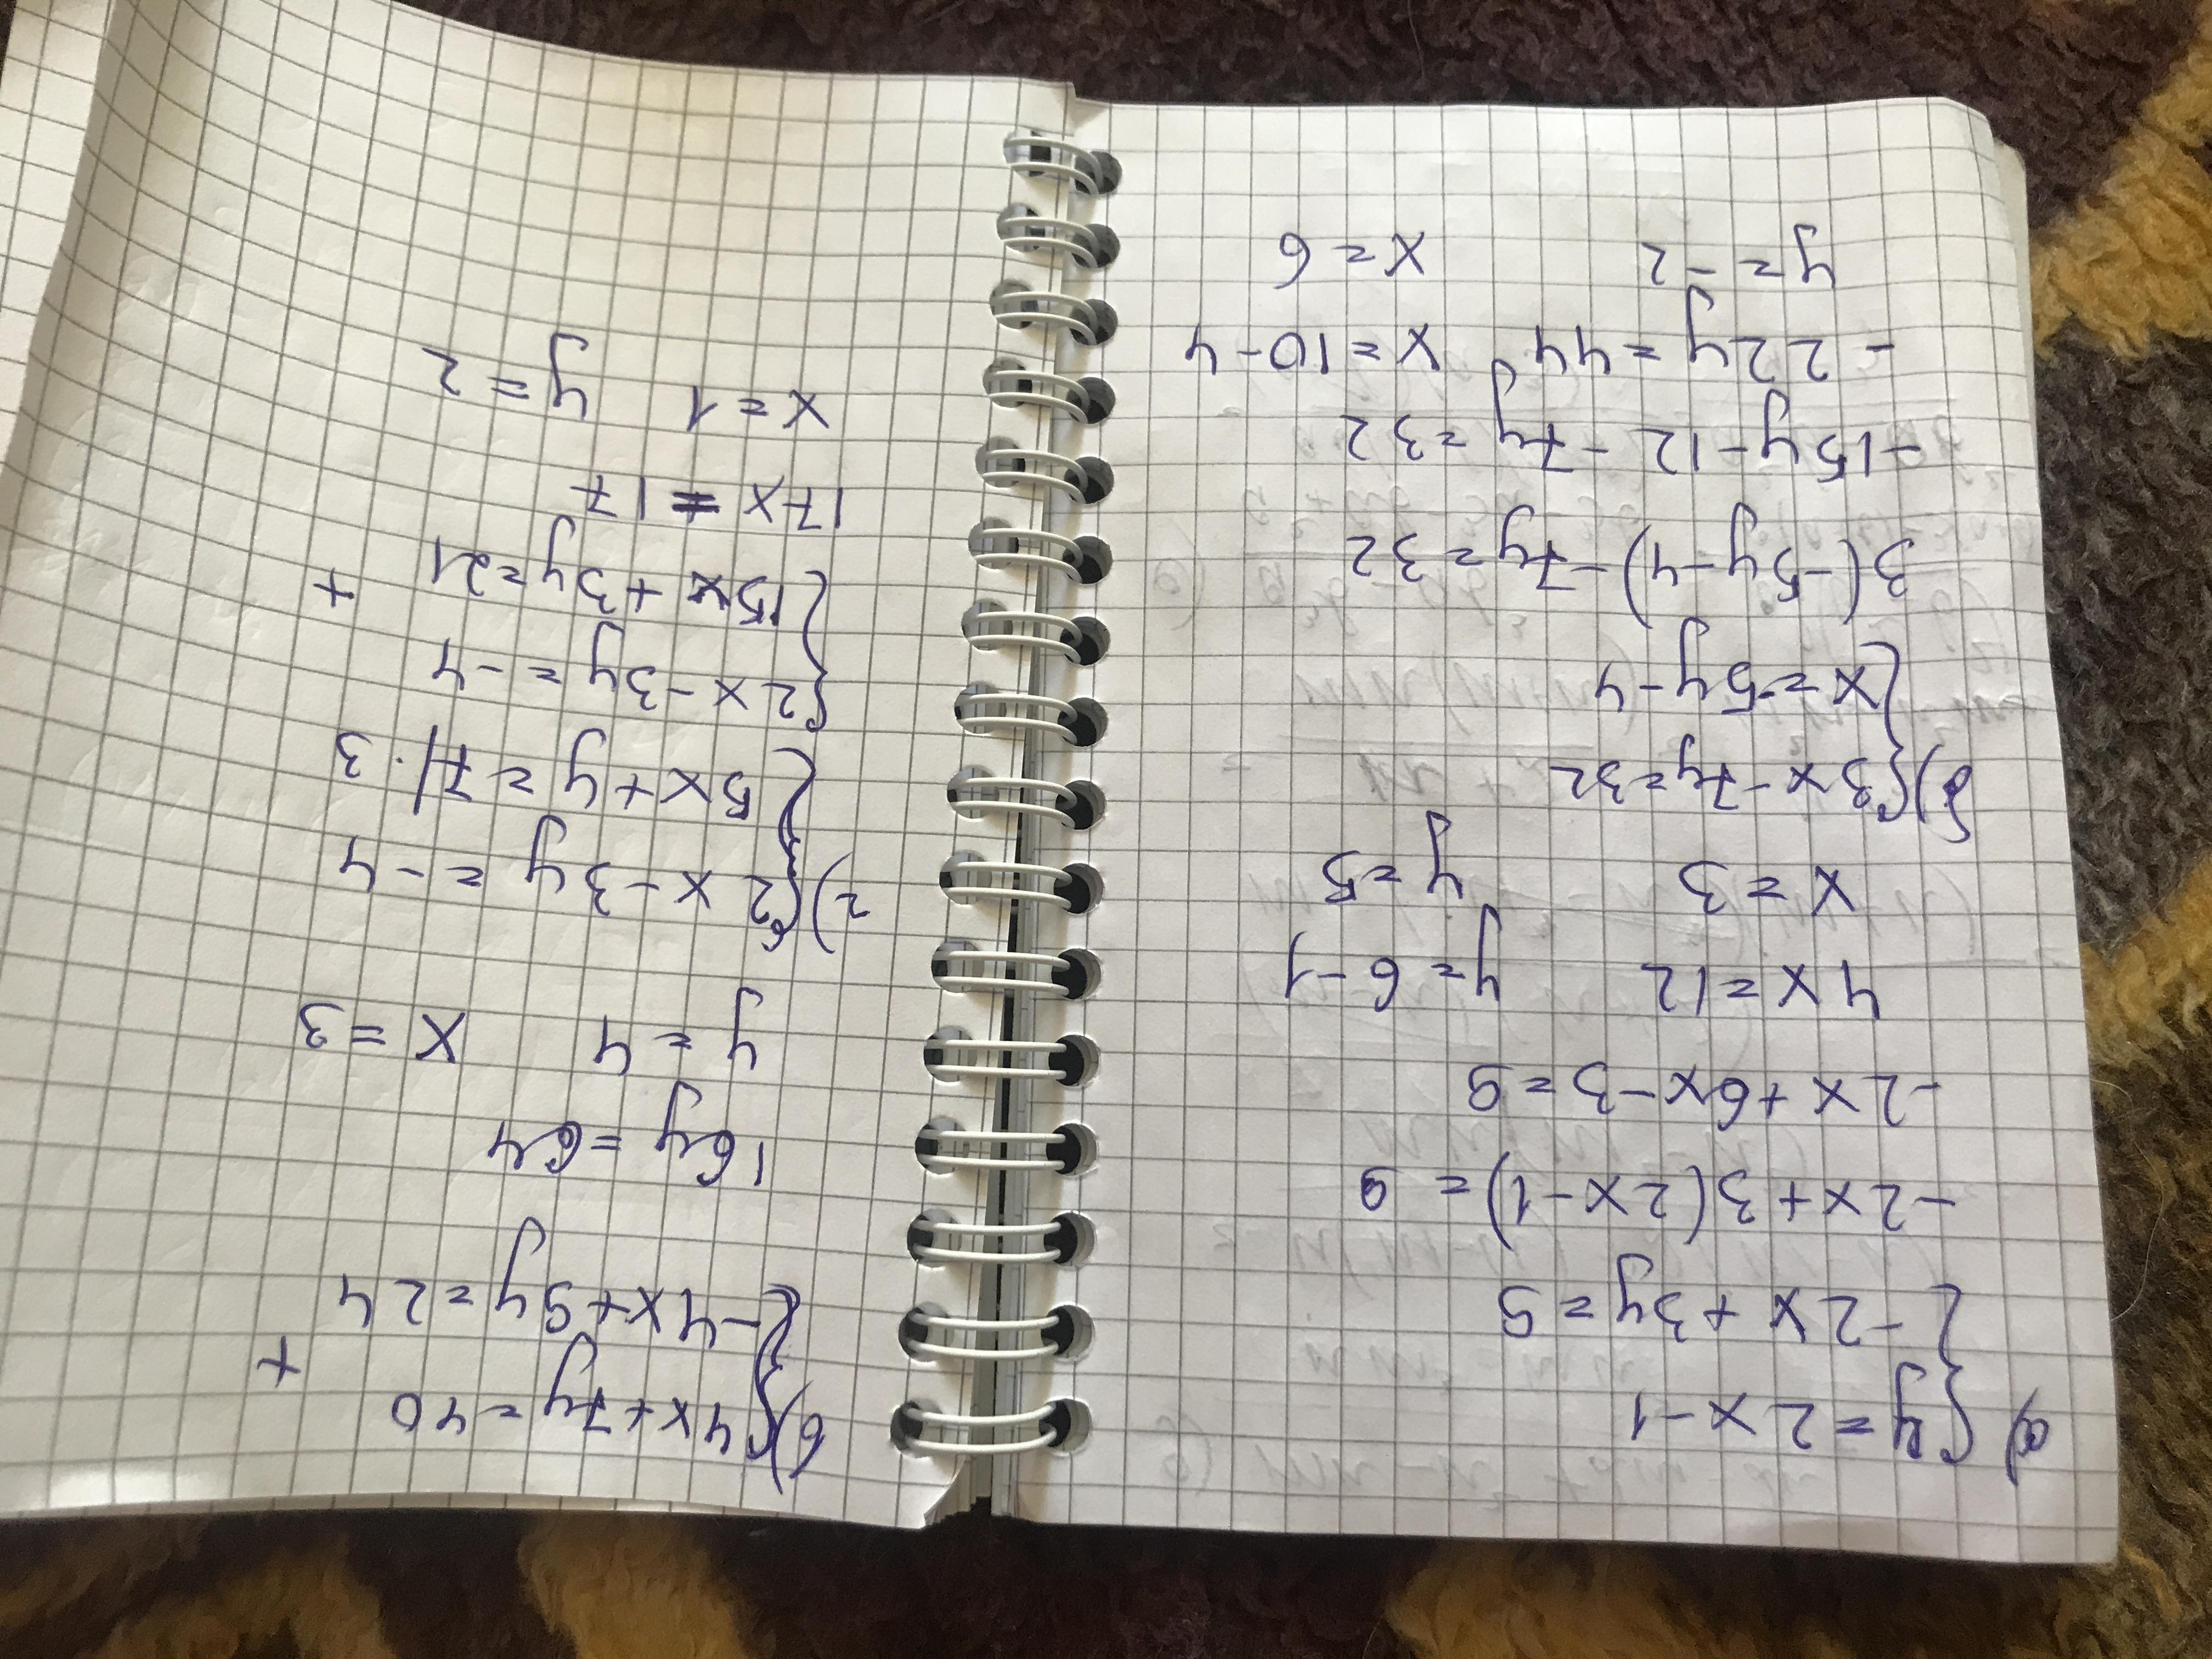 а) { y = 2x - 1
{ -2x + 3y = 9
-2x + 3(2x - 1) = 9
-2x + 6x - 3 = 9
4x = 12 y = 6 - 1
x = 3 y = 5
б) { 3x - 7y = 32
{ x = -5y - 4
3(-5y - 4) - 7y = 32
-15y - 12 - 7y = 32
-22y = 44 x = 10 - 4
y = -2 x = 6
в) { 4x + 7y = 40
{ -4x + 9y = 24 +
16y = 64
y = 4 x = 3
г) { 2x - 3y = -4
{ 5x + y = 7 | · 3
{ 2x - 3y = -4
{ 15x + 3y = 21 +
17x = 17
x = 1 y = 2